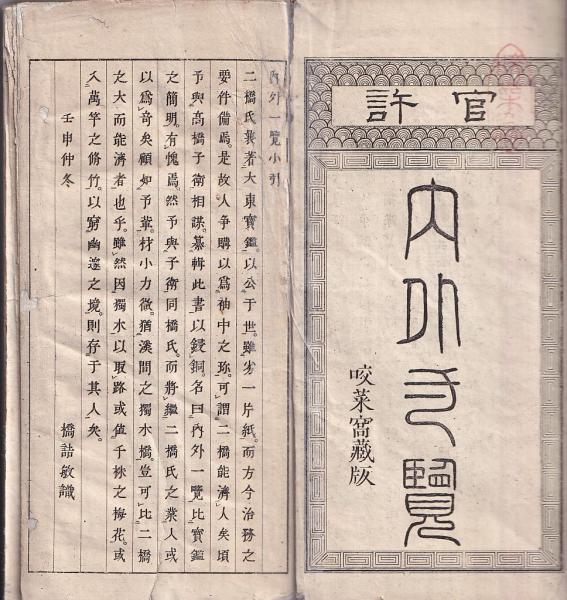 官許
內外一覽
咬菜窩藏版
內外一覽小引
二橋氏曩著大東寶鑑。以公于世。雖一片紙。而方今治務之
要件備焉。是故人爭購以爲袖中之珎。可謂二橋能濟人矣。頃
予與高橋子衛相謀。纂輯此書以鋟銅。名曰內外一覽。比寶鑑
之簡明。有愧焉。然予與子衛同橋氏。而將繼二橋氏之業。人或
以爲奇矣。顧如予輩。材小力微。猶溪間之獨木橋。豈可比二橋
之大而能濟者也乎。雖然因獨木以取路。或値千株之梅花。或
入萬竿之脩竹。以窮幽邃之境。則存于其人矣。
壬申仲冬　橋詰敏識